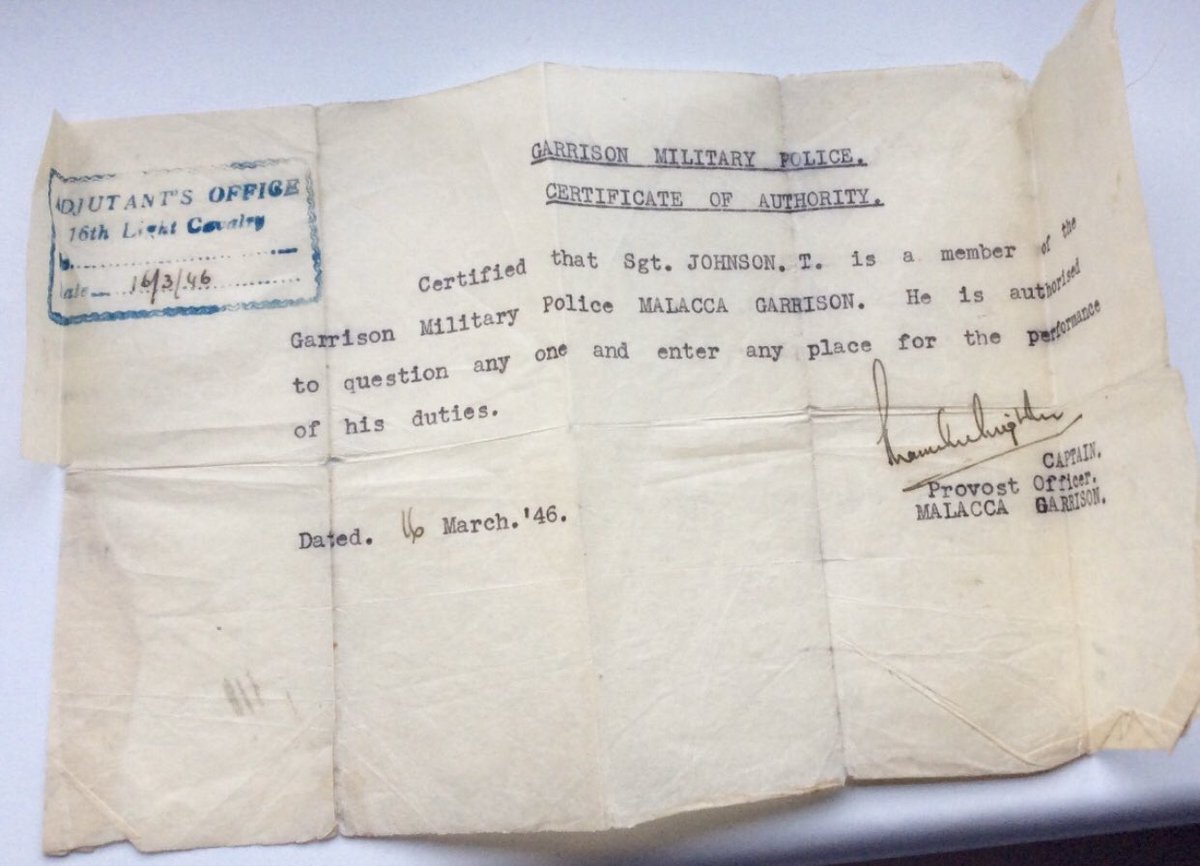 GARRISON MILITARY POLICE.
CERTIFICATE OF AUTHORITY.
DJUTANT'S OFFICE
16th Light Cavalry
ate 16/3/46
Certified that Sgt. JOHNSON. T. is a member of the
Garrison Military Police MALACCA GARRISON. He is authorised
to question any one and enter any place for the performance
of his duties.
CAPTAIN.
Provost Officer.
MALACCA GARRISON.
Dated. 16 March.'46.